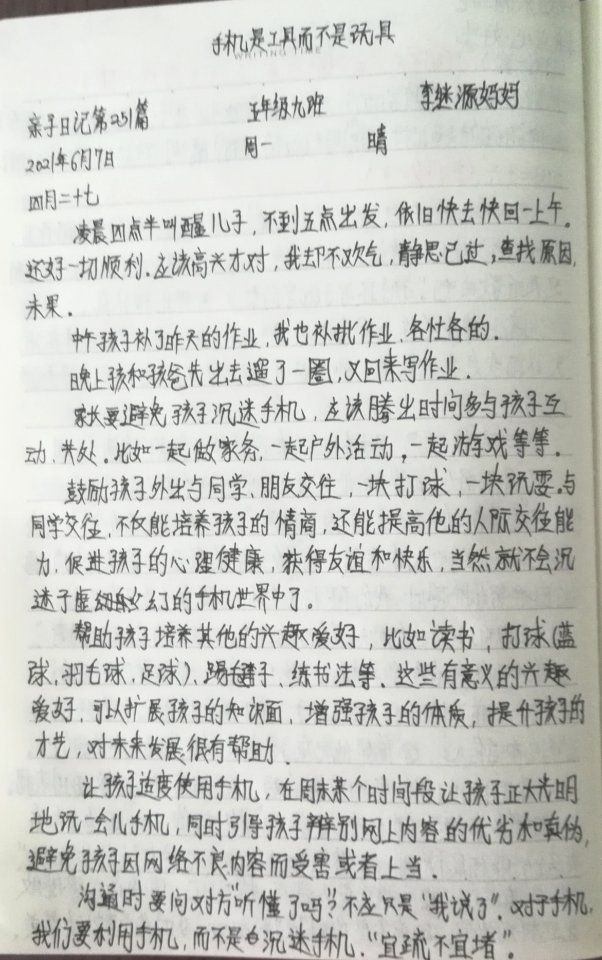 手机是工具而不是玩具
WRITING TIME
亲子日记第251篇 五年级九班 李继源妈妈
2021年6月7日 周一 晴
四月二十七
凌晨四点半叫醒儿子，不到五点出发，依旧快去快回一上午。
还好一切顺利。应该高兴才对，我却不欢气，静思己过，查找原因，
未果。
中午孩子补了昨天的作业，我也补批作业，各忙各的.
晚上孩和孩爸先出去遛了一圈，又回来写作业.
家长要避免孩子沉迷手机，应该腾出时间多与孩子互
动、共处。比如一起做家务，一起户外活动，一起游戏等等.
鼓励孩子外出与同学、朋友交往，一块打球，一块玩耍。与
同学交往，不仅能培养孩子的情商，还能提高他的人际交往能
力，促进孩子的心理健康，获得友谊和快乐，当然就不会沉
迷于虚幻的手机世界中了。
帮助孩子培养其他的兴趣爱好，比如读书，打球(蓝
球，羽毛球，足球)、踢毽子、练书法等。这些有意义的兴趣
爱好，可以扩展孩子的知识面，增强孩子的体质，提升孩子的
才艺，对未来发展很有帮助.
让孩子适度使用手机，在周末某个时间段让孩子正大光明
地玩一会儿手机，同时引导孩子辨别网上内容的优劣和真伪，
避免孩子因网络不良内容而受害或者上当.
沟通时要问对方"听懂了吗?"不应只是"我说了". 对于手机，
我们要利用手机，而不是沉迷手机."宜疏不宜堵".